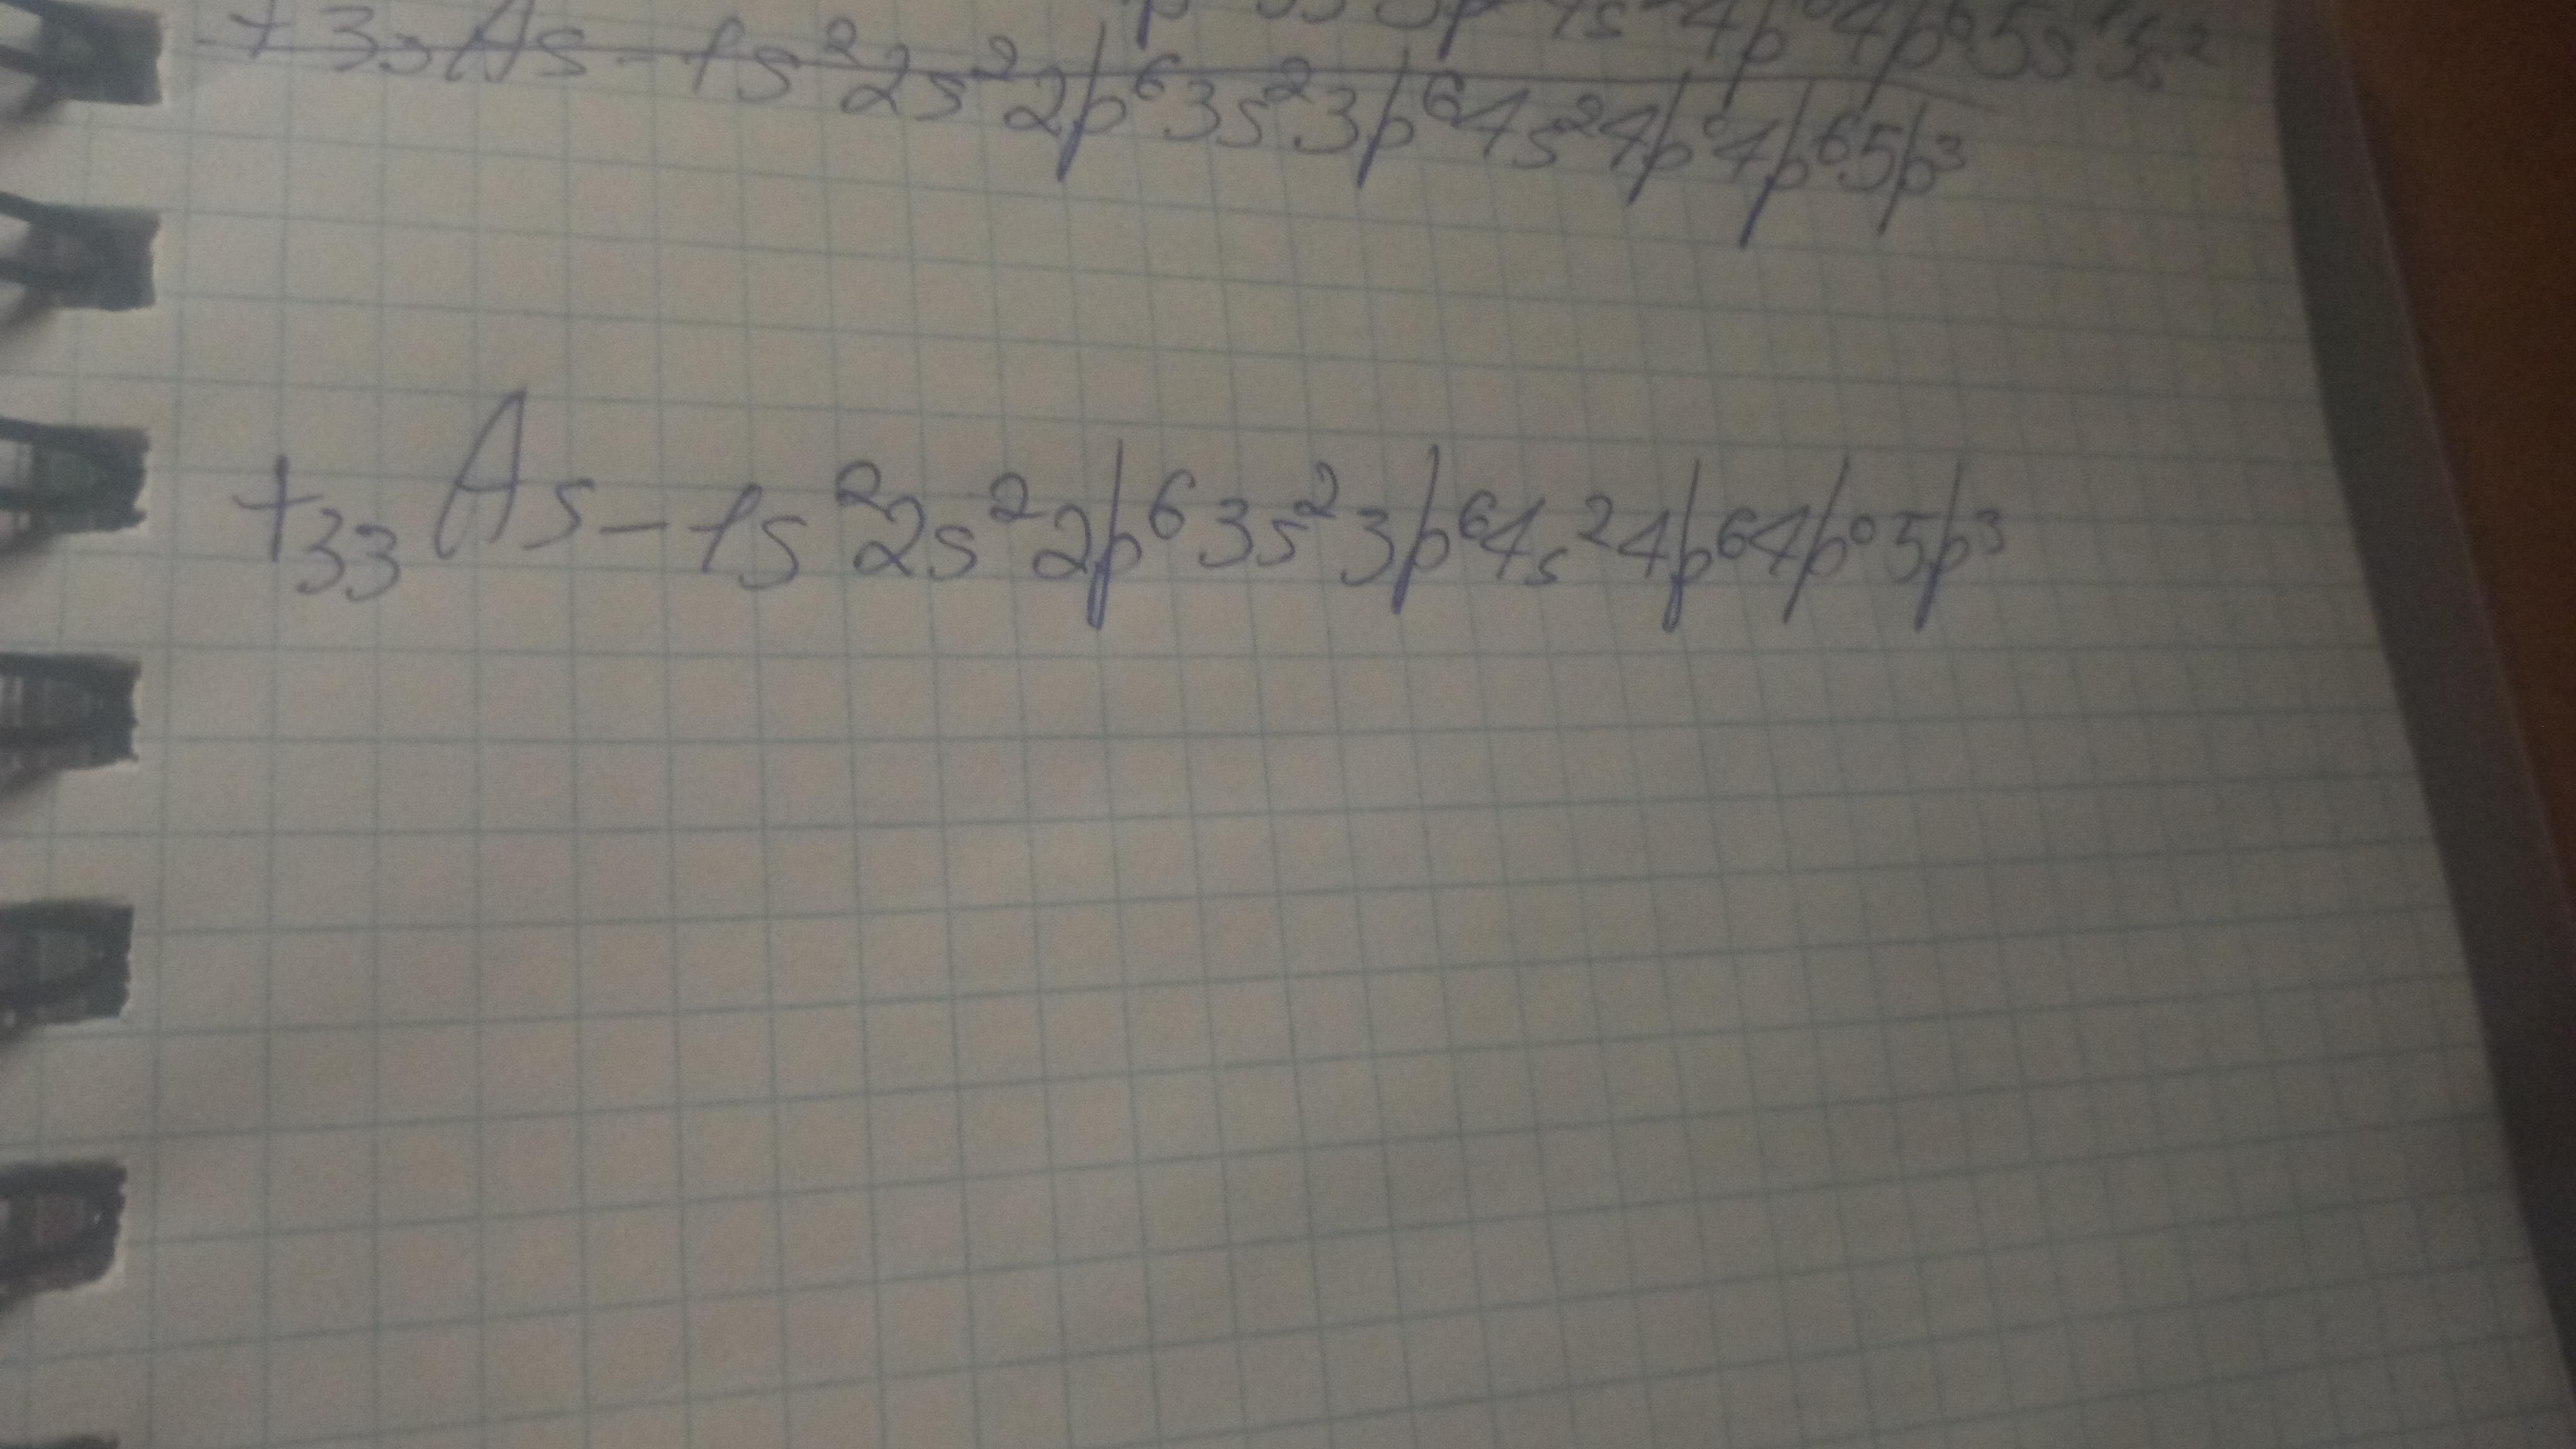 4s² 4p⁰ 4p⁶ 5s² 5s²
+33 As – 1s² 2s² 2p⁶ 3s² 3p⁶ 4s² 4p⁰ 4p⁶ 5p³
+33 As – 1s² 2s² 2p⁶ 3s² 3p⁶ 4s² 4p⁶ 4p⁰ 5p³